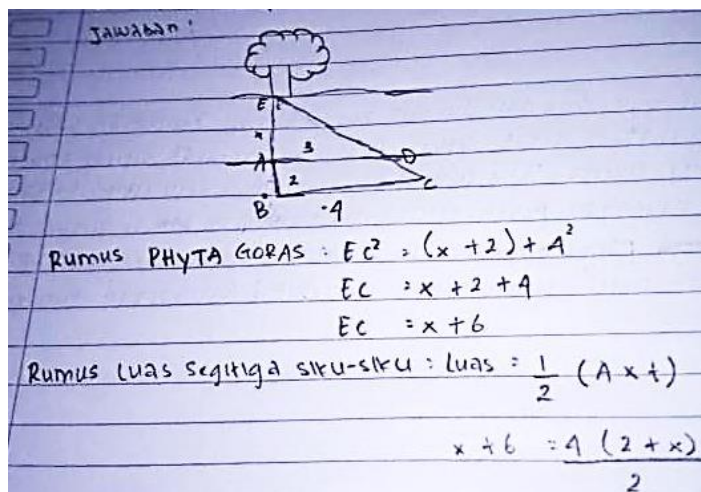 Jawaban :
E
x
A 3 D
2
B 4 C
Rumus PHYTA GORAS : EC² = (x + 2) + 4²
EC = x + 2 + 4
EC = x + 6
Rumus Luas Segitiga siku-siku : Luas = 1/2 (A x t)
x + 6 = 4 (2 + x)/2